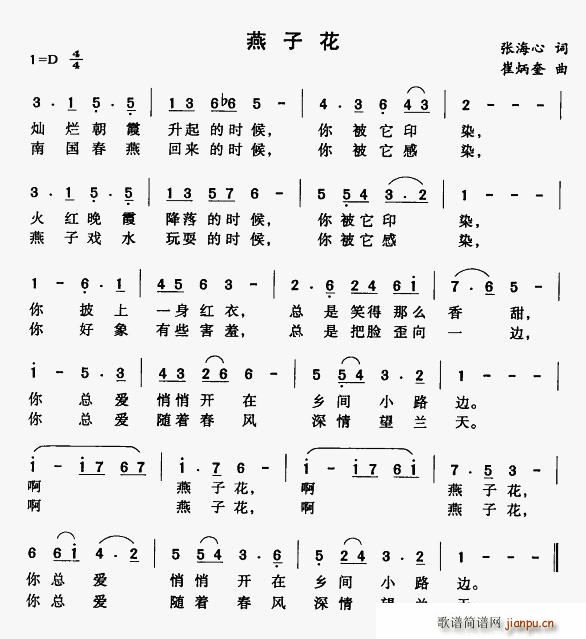 燕子花
1=D 4/4
张海心 词
崔炳奎 曲
3 . 1 5 . 5 | 1 3 6 ♭6 5 - | 4 . 3 6 4 3 | 2 - - - |
灿 烂 朝 霞 升 起 的 时 候, 你 被 它 印 染,
南 国 春 燕 回 来 的 时 候, 你 被 它 感 染,
3 . 1 5 . 5 | 1 3 5 7 6 - | 5 5 4 3 . 2 | 1 - - - |
火 红 晚 霞 降 落 的 时 候, 你 被 它 印 染,
燕 子 戏 水 玩 耍 的 时 候, 你 被 它 感 染,
1 - 6 . 1 | 4 5 6 3 - | 2 . 6 2 4 6 i | 7 . 6 5 - |
你 披 上 一 身 红 衣, 总 是 笑 得 那 么 香 甜,
你 好 象 有 些 害 羞, 总 是 把 脸 歪 向 一 边,
i - 5 . 3 | 4 3 2 6 - | 5 5 4 3 . 2 | 1 - - - |
你 总 爱 悄 悄 开 在 乡 间 小 路 边。
你 总 爱 随 着 春 风 深 情 望 兰 天。
i - i 7 6 7 | i . 7 6 - | i - i 7 6 i | 7 . 5 3 - |
啊 燕 子 花, 啊 燕 子 花,
啊 燕 子 花, 啊 燕 子 花,
6 6 i 4 . 2 | 5 5 5 3 - | 5 2 4 3 . 2 | 1 - - - |
你 总 爱 悄 悄 开 在 乡 间 小 路 边。
你 总 爱 随 着 春 风 深 情 望 兰 天。
歌谱简谱网
jianpu.cn